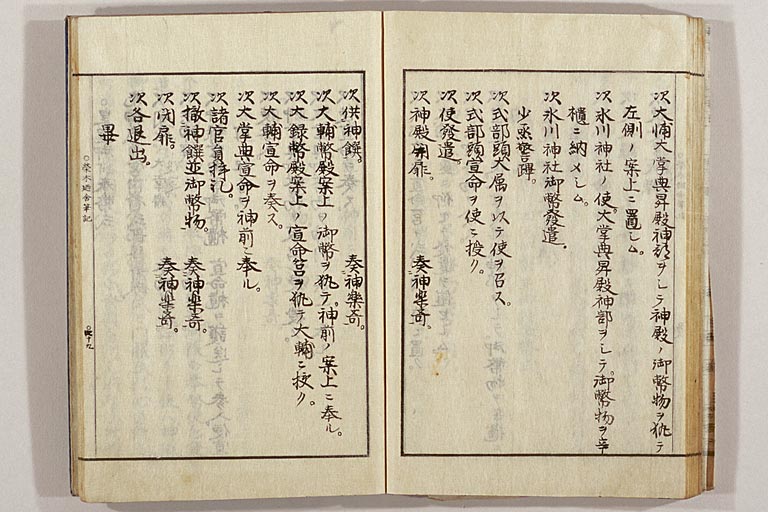 次大輔大掌典昇殿神部ヲシテ神殿ノ御幣物ヲ執テ
左側ノ案上ニ置シム。
次氷川神社ノ使大掌典昇殿神部ヲシテ。御幣物ヲ辛
櫃ニ納メシム。
次氷川神社御幣發遣。
少丞警蹕。
次式部頭大属ヲ以テ使ヲ召ス。
次式部頭宣命ヲ使ニ授ク。
次使發遣。
次神殿開扉。 奏神樂奇。
次供神饌。 奏神樂奇。
次大輔幣殿案上ノ御幣ヲ執テ。神前ノ案上ニ奉ル。
次大録幣殿案上ノ宣命筥ヲ執テ大輔ニ授ク。
次大輔宣命ヲ奏ス。
次大掌典宣命ヲ神前ニ奉ル。
次諸官員拝礼。
次撤神饌並御幣物。 奏神樂奇。
次閉扉。 奏神樂奇。
次各退出。
畢